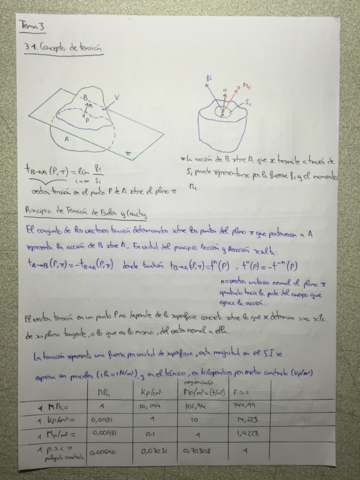 Tema 3
3.1. Concepto de tensión
B
V
P
A
π
Pi
Mi
Si
* La acción de B sobre A que se transmite a través de
Si puede representarse por la fuerza Pi y el momento
Mi.
t B→A (P, π) = lim Pi / Si
vector tensión en el punto P de A sobre el plano π
Principio de Tensión de Euler y Cauchy
El conjunto de los vectores tensión determinados sobre los puntos del plano π que pertenecen a A
representa la acción de B sobre A. En virtud del principio acción y reacción
t A→B (P, π) = - t B→A (P, π) donde también t B→A (P, π) = tⁿ (P) , tⁿ (P) = - t⁻ⁿ (P)
n = vector unitario normal al plano π
apuntando hacia la parte del cuerpo que
ejerce la acción.
El vector tensión en un punto P no depende de la superficie concreta sobre la que se determina sino sólo
de su plano tangente, o lo que es lo mismo, del vector normal a ella.
La tensión representa una fuerza por unidad de superficie, esta magnitud en el S.I se
expresa en pascales (1 Pa = 1 N/m²), y en el técnico, en kilopondios por metro cuadrado (kp/m²)
MPa
kp/cm²
Mp/m² = (t/m²)
p.s.i
1 MPa =
1
10,194
101,94
1 kp/cm² =
0,0981
1
10
14,223
1 Mp/m² =
0,00981
0.1
1
1,4223
1 p.s.i =
0,00690
0,07031
0,70308
1